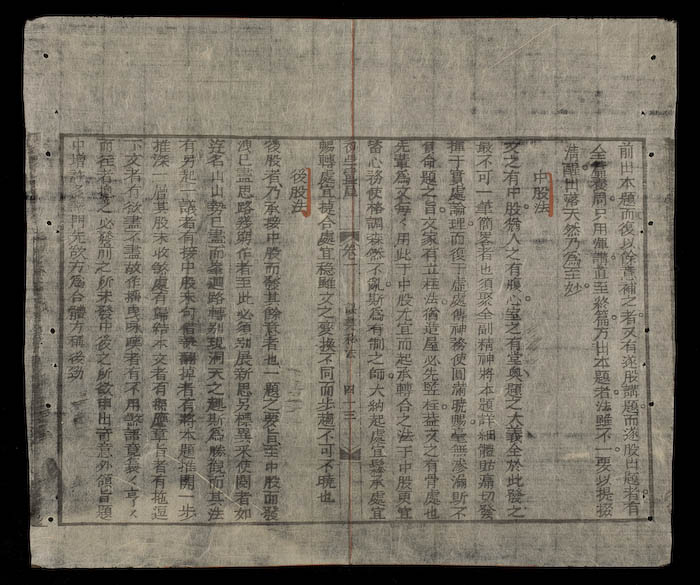 前出本題而復以餘意補之者又有逐股講題而逐股出題者有
全篇養局只用渾講直至終篇方出本題者法雖不一要以提掇
清醒出落天然乃為至妙
中股法
文之有中股猶人之有腹心室之有堂奧題之大義全於此發之
最不可一筆簡畧者也須聚全副精神將本題詳細體貼痛切發
揮于實處論理而復于虛處傳神務使圓滿毫無滲漏斯不
負命題之旨文家有立柱法猶造屋必先竪柱益文之有骨處也
先輩為文每〻用此于中股尤宜而起承轉合之法于中股更宜
皆心務使格調森然不亂斯為有制之師大約起處宜緊承處宜
卷一
四十三
暢轉處宜捷合處宜穩雖文之變換不同而步趨不可不曉也
後股法
後股者乃承接中股而發其餘意者也一題之要旨至中股而發
洩已盡思路幾窮作者至此必須別展新思另標異采使閱者如
遊名山山勢已盡而峯迴路轉別現洞天之趣斯為勝觀而其法
有另起一議者有接中股末句信手翻掉者有將本題推開一步
推深一層其股末收煞處有歸結本文者有照應章旨者有拖逗
下文者有欲盡不盡故作搖曳咏嘆者有不用
而在者換之必發前之所未發中後之所欲中出奇意外領旨題
中增許多門